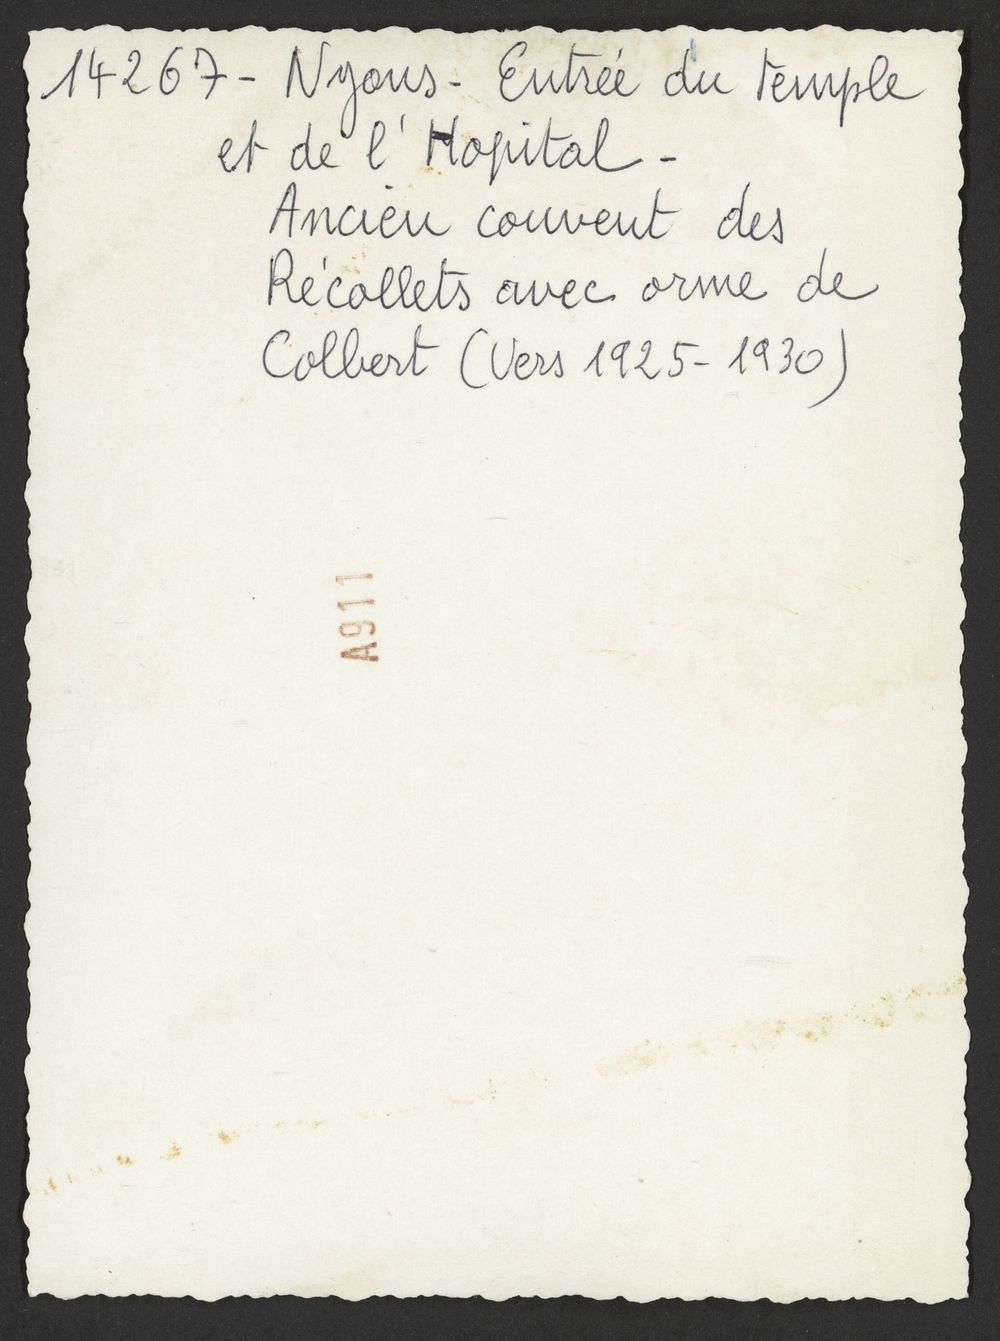 14267 - Nyons - Entrée du temple
et de l'Hopital -
Ancien couvent des
Récollets avec orme de
Colbert (Vers 1925-1930)
A911